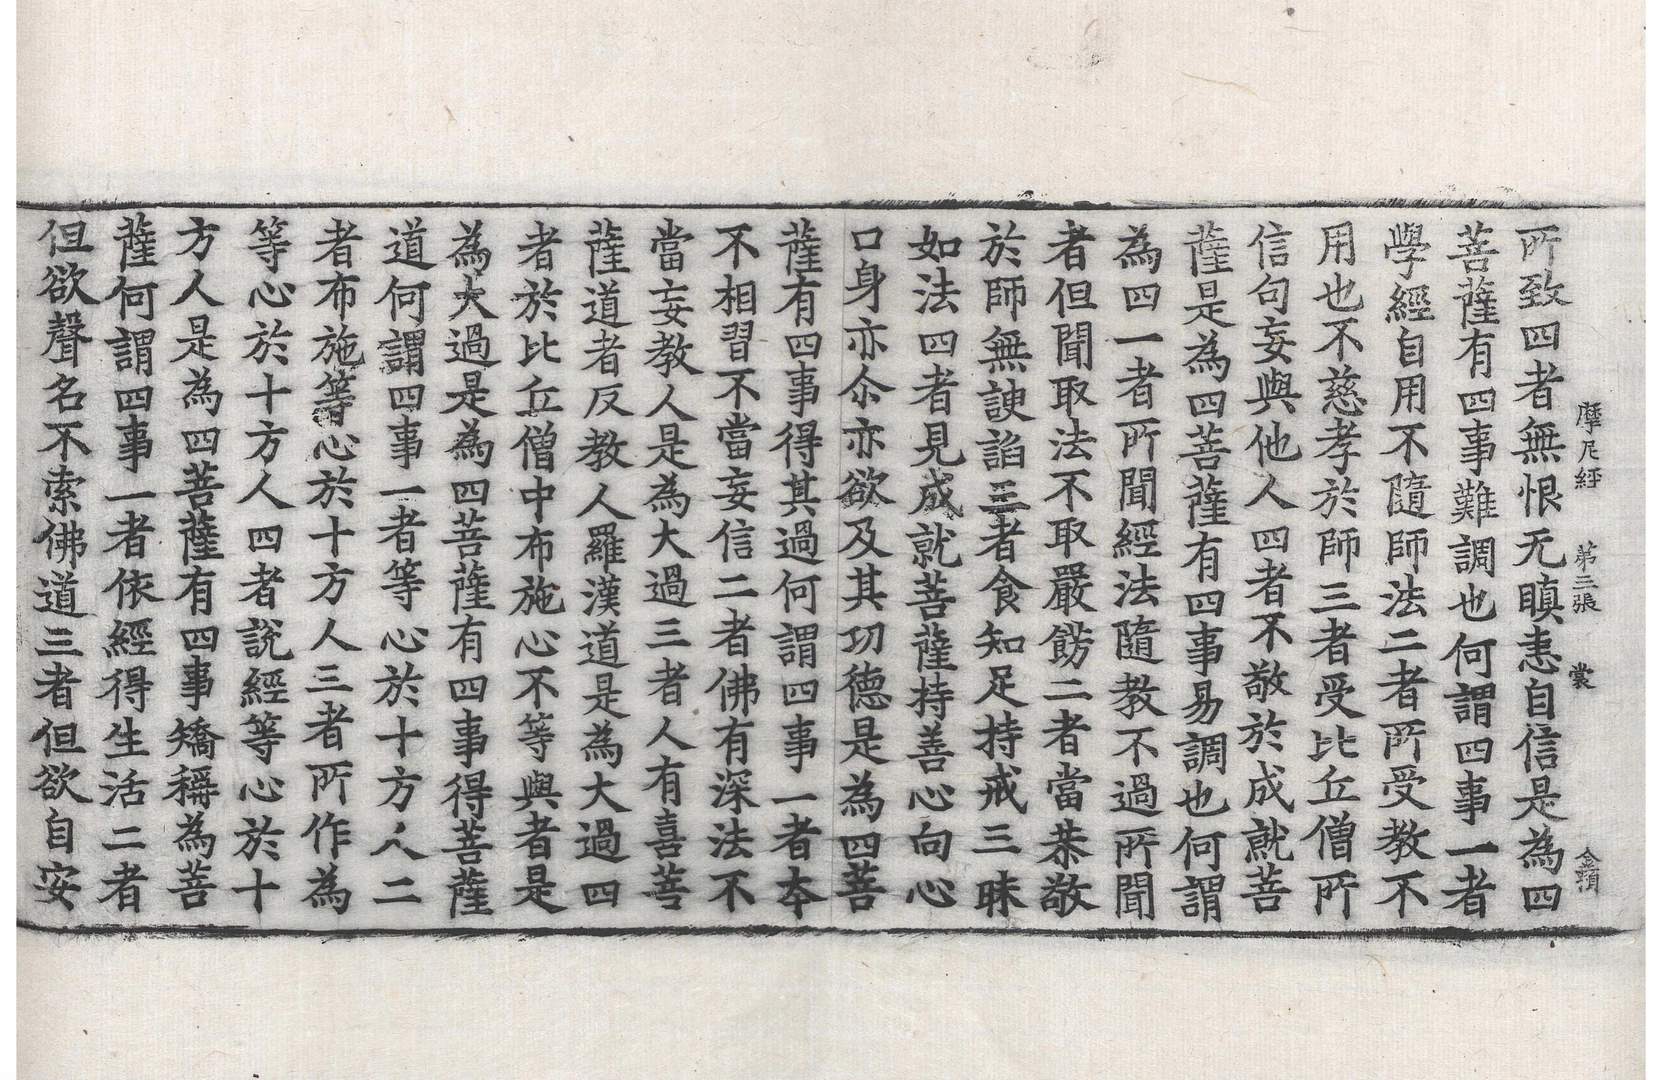 摩尼經 第三張 裳
所致四者無恨无瞋恚自信是為四
菩薩有四事難調也何謂四事一者
學經自用不隨師法二者所受教不
用也不慈孝於師三者受比丘僧所
信句妄與他人四者不敬於成就菩
薩是為四菩薩有四事易調也何謂
為四一者所聞經法隨教不過所聞
者但聞取法不取嚴餝二者當恭敬
於師無諛諂三者食知足持戒三昧
如法四者見成就菩薩持善心向心
口身亦尒亦欲及其功德是為四菩
薩有四事得其過何謂四事一者本
不相習不當妄信二者佛有深法不
當妄教人是為大過三者人有喜菩
薩道者反教人羅漢道是為大過四
者於比丘僧中布施心不等與者是
為大過是為四菩薩有四事得菩薩
道何謂四事一者等心於十方人二
者布施等心於十方人三者所作為
等心於十方人四者說經等心於十
方人是為四菩薩有四事矯稱為菩
薩何謂四事一者依經得生活二者
但欲聲名不索佛道三者但欲自安